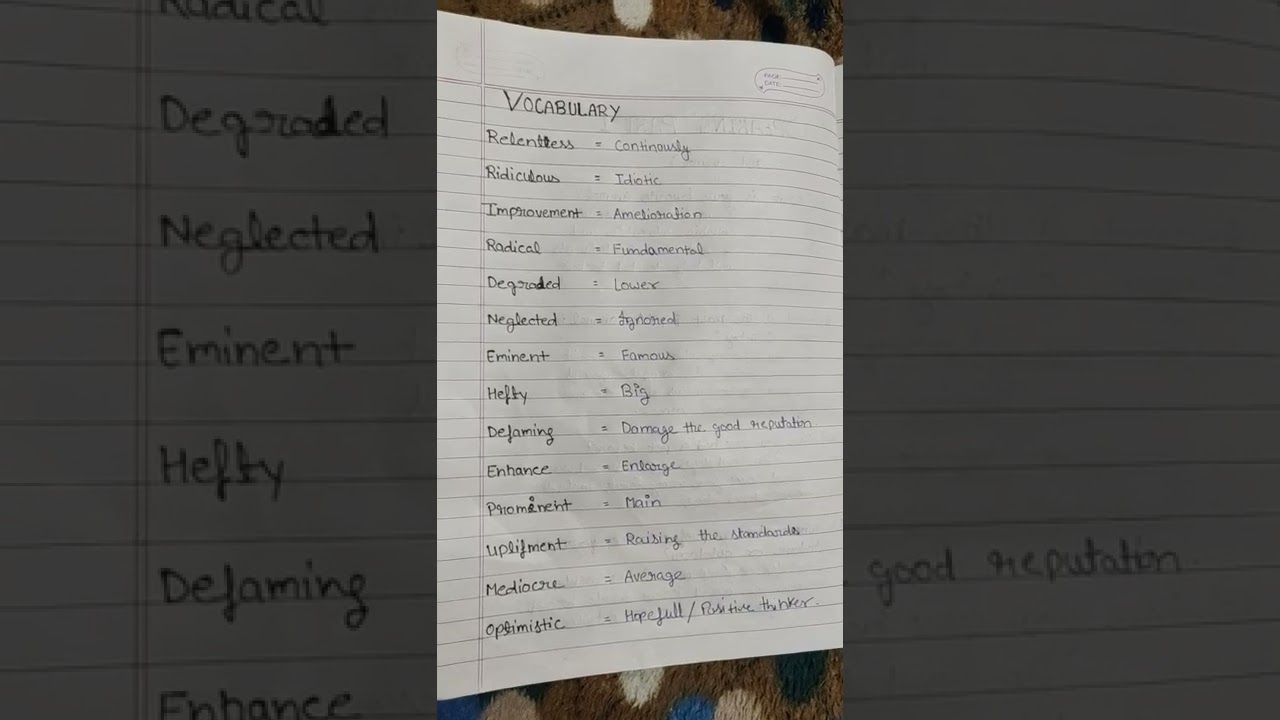 PAGE:
DATE:
VOCABULARY
Relentless = Continously
Ridiculous = Idiotic
Improvement = Amelioration
Radical = Fundamental
Degraded = Lower
Neglected = Ignored
Eminent = Famous
Hefty = Big
Defaming = Damage the good reputation
Enhance = Enlarge
Prominent = Main
Uplifment = Raising the standards
Mediocre = Average
Optimistic = Hopefull / Positive thinker.
Radical
Degraded
Neglected
Eminent
Hefty
Defaming good reputation
Enhance